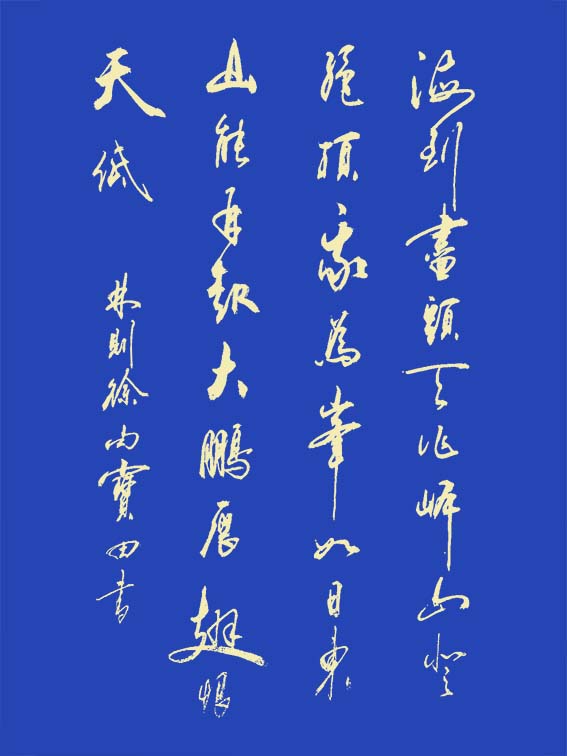 海到盡頭天作岸山登
絕頂我為峯如日東
山能再起大鵬展翅恨
天低
林則徐 寶田書